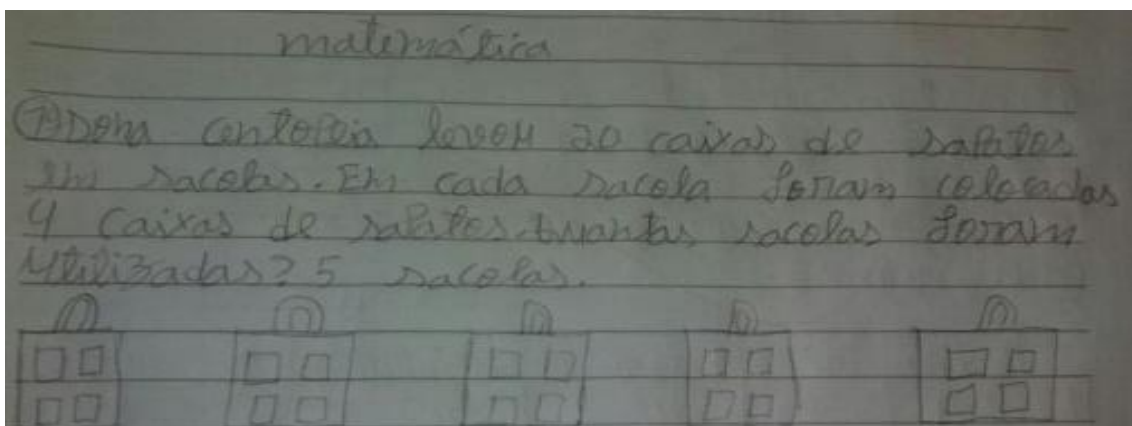 matemática
1) Dona centopeia levou 20 caixas de sapatos
em sacolas. Em cada sacola foram colocadas
4 caixas de sapatos. quantas sacolas foram
utilizadas? 5 sacolas.